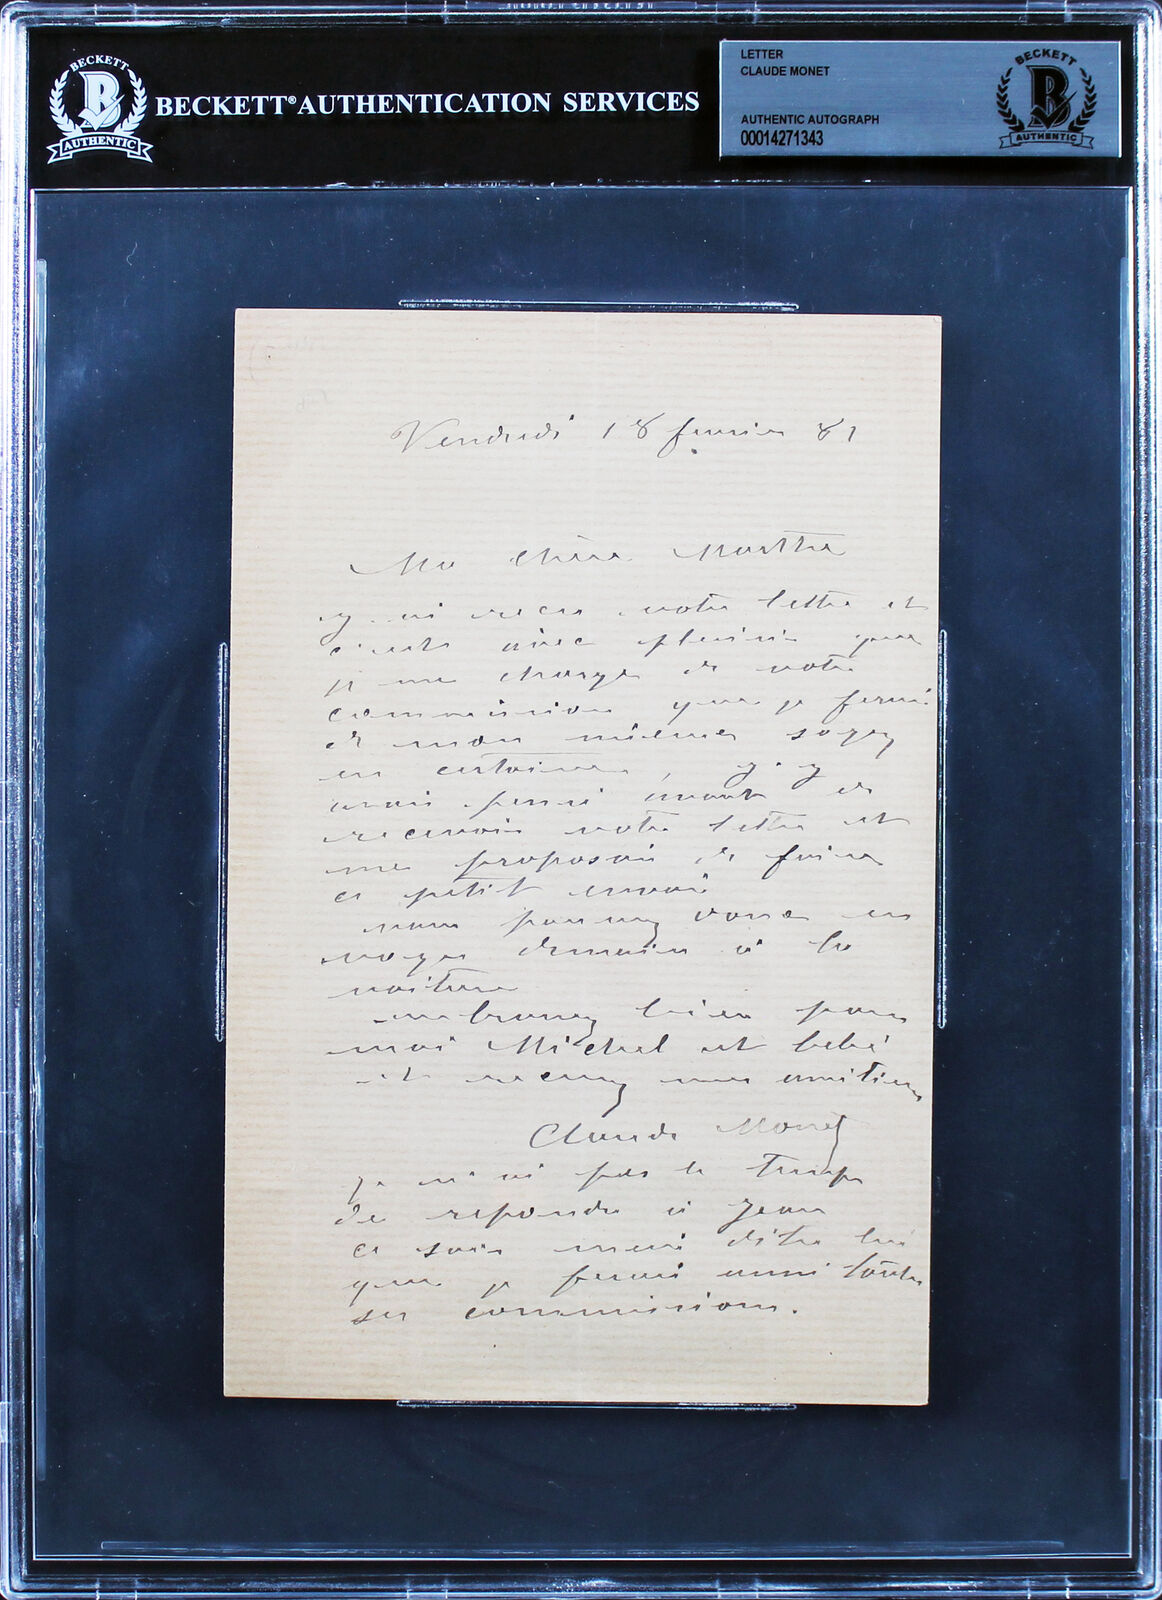 BECKETT
B
AUTHENTIC
BECKETT® AUTHENTICATION SERVICES
LETTER
CLAUDE MONET
AUTHENTIC AUTOGRAPH
00014271343
BECKETT
B
AUTHENTIC
Vendredi 18 fevrier 81
Ma chère Marthe
j'ai recu votre lettre et
c'est avec plaisir que
je me charge de votre
commission que je ferai
de mon mieux soyez
en certaine, j'y
avais pensé avant de
recevoir votre lettre et
me proposais de faire
ce petit envoi
vous pouvez
voyer demain à la
voiture
embrassez bien pour
moi Michel et bébé
et recevez mes amitiés
Claude Monet
je n'ai pas le temps
de repondre à Jean
ce soir mais dites lui
que je ferai aussi toutes
ses commissions.